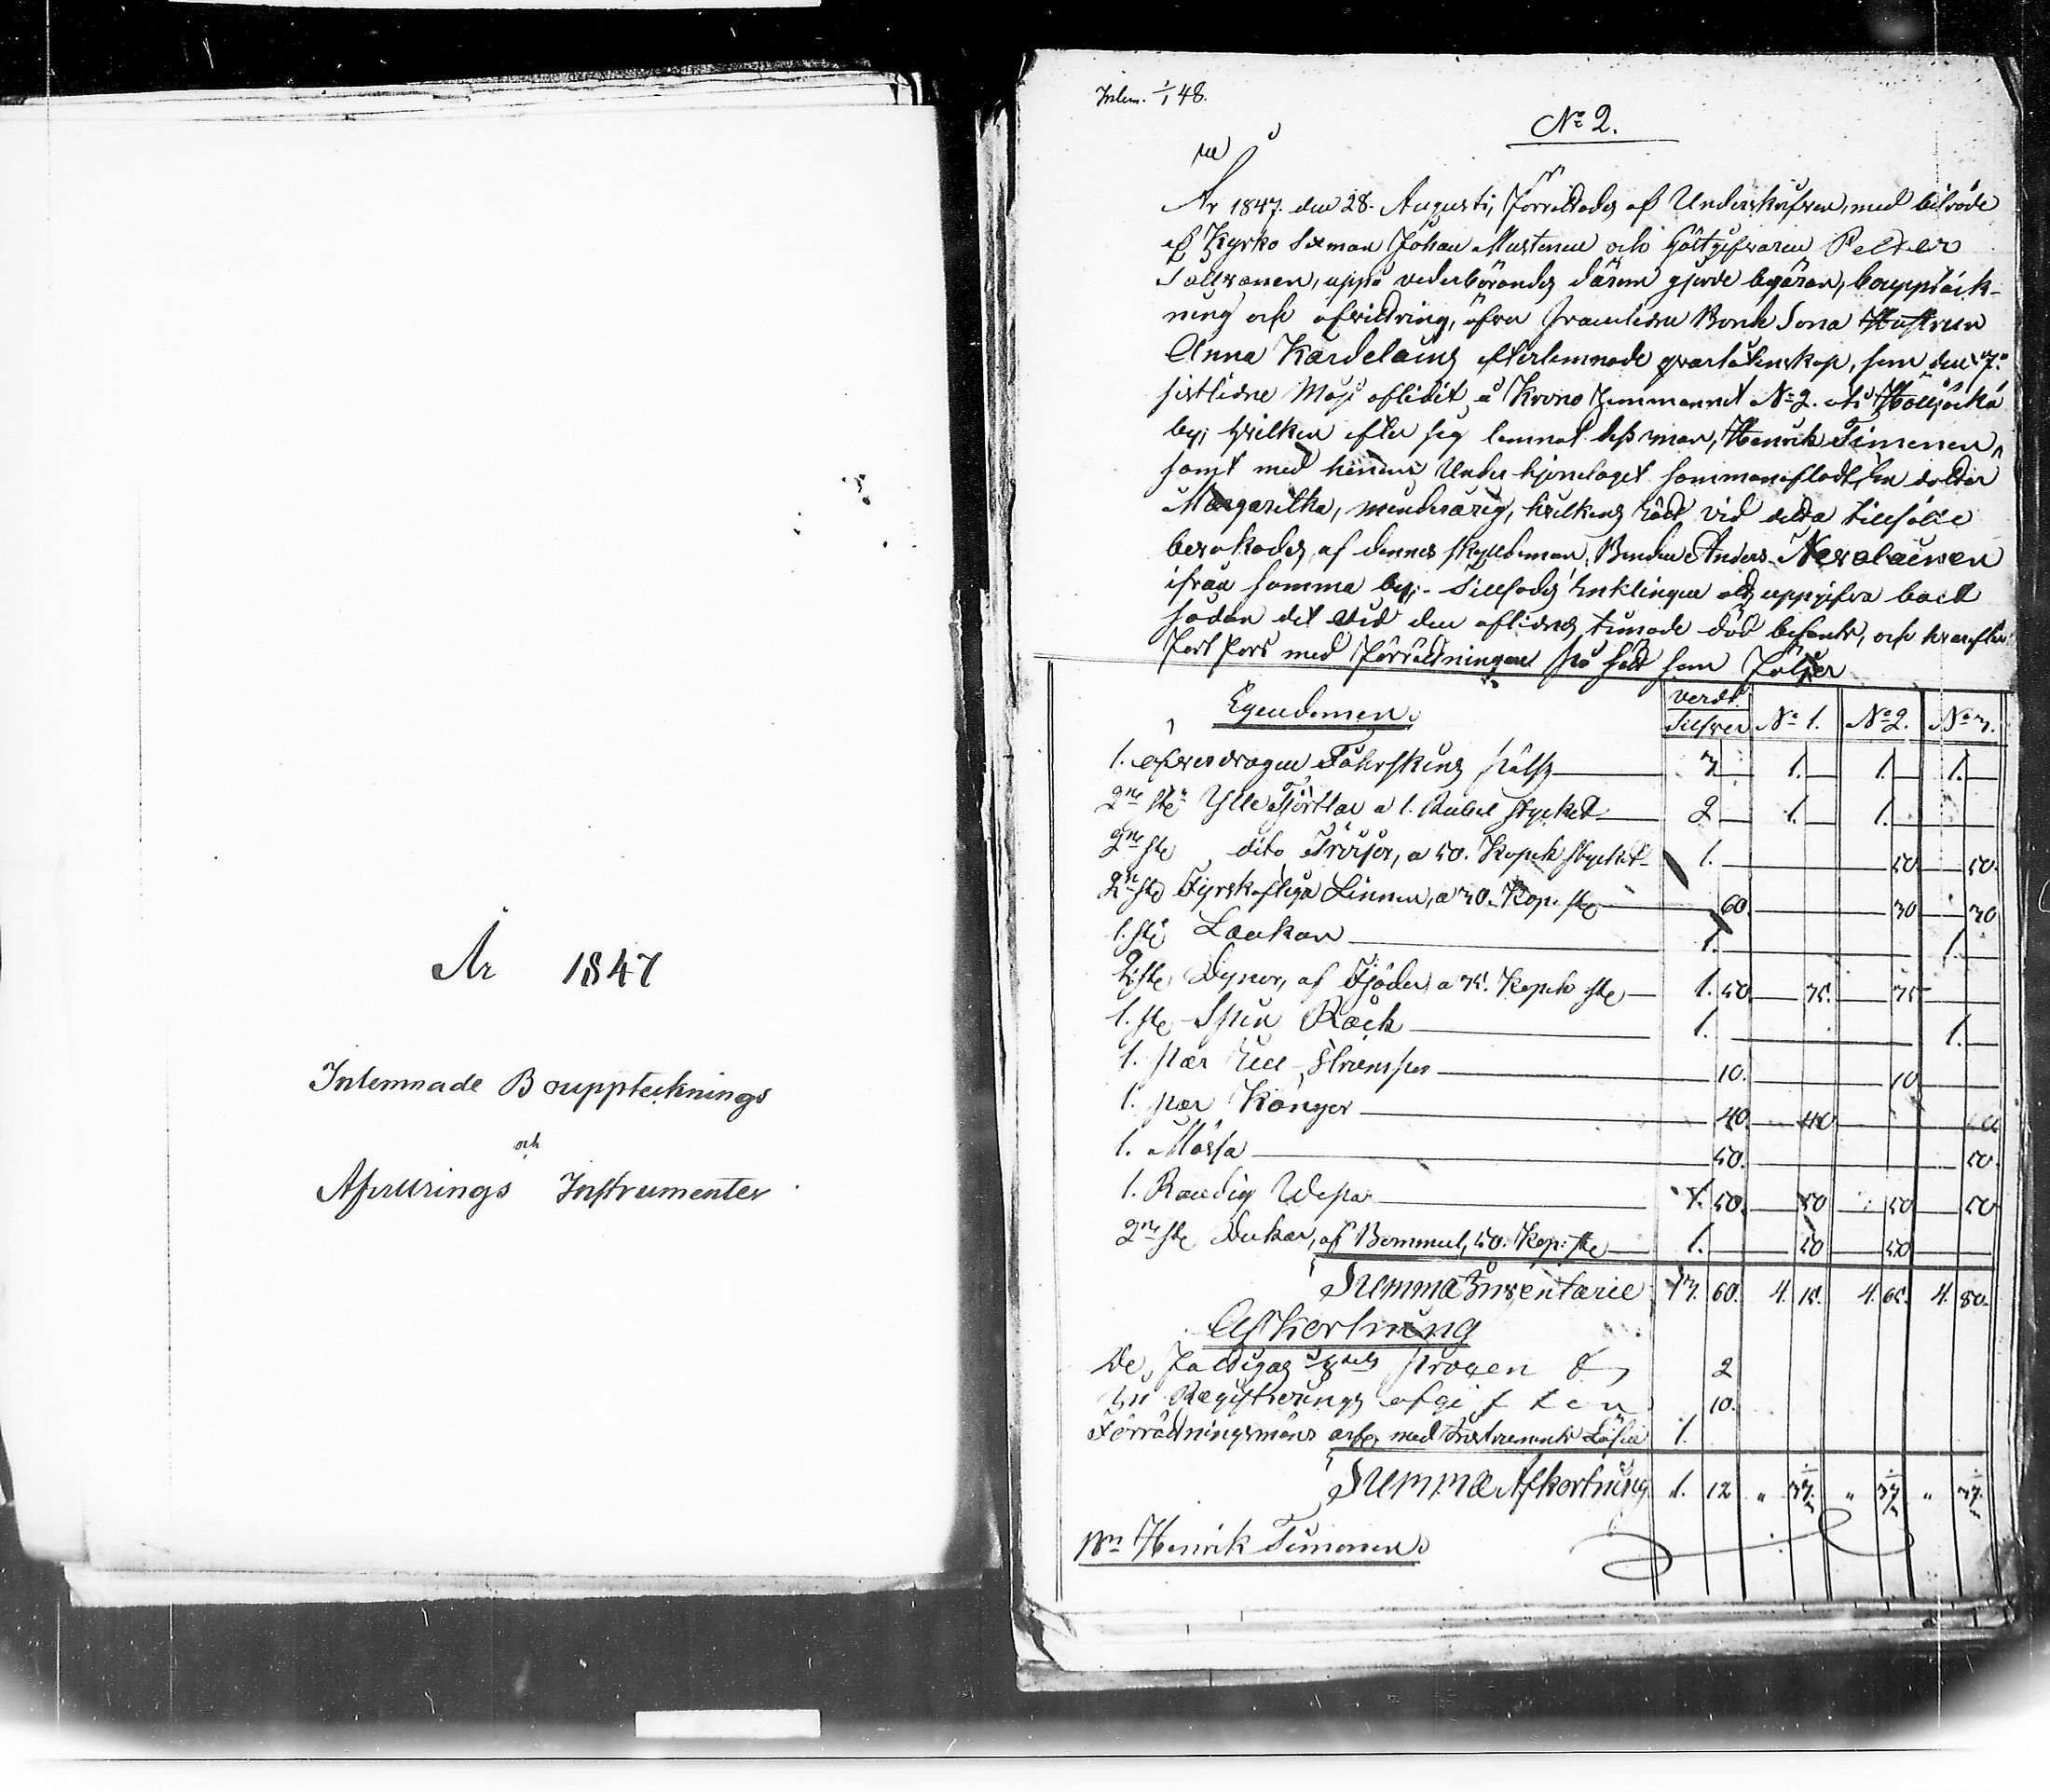 År 1847
Inlemnade Boupptecknings
och
Afvittrings Instrumenter
Inlem. 1/1 48.
No 2.
År 1847. den 28. Augusti, förrättades af Underskrifven, med biträde
af Kyrko Sexman Johan Mustonen och Gästgifvaren Petter
uppå vederbörandes därom gjorde begäran, boupptäck-
ning och afvittring, öfver framledne Bonde Sona Hustrun
Anna Kardelains efterlemnade qvarlåtenskap, som den 7.
sistledne Maji aflidit å Krono Hemmanet No 2. uti
by; hvilken efter sig lemnat dess man, Henrik Timonen,
samt med honom under hjonelaget sammanaflade, en dotter
Margaretha, minderårig, hvilkens rätt vid detta tillfälle
bevakades af dennes skyldeman, Bonden Anders
ifrån samma by; - Tillsades Enklingen att uppgifva boet
sådan det vid den aflidnes timade död befants, och hvarefter
fortfors med förrättningen på sätt som följer
Egendomen.
Verdt Silfver No 1. No 2. No 3.
1. öfverdragen Fårskins päls 3 1. 1. 1.
2ne st: Ylle Kjortlar a 1. Rubel stycket 2 1. 1.
2ne st: dito Tröijor, a 50. Kopek stycket 1. 50 50.
2ne st: Fyrskaftiga Linnen, a 30. Kop: st: 60. 30 30
1. st: Laakan 1. 1.
2 st: Dynor, af Fjäder, a 75. Kopek st: 1. 50. 75. 75
1. st: Spin Råck 1. 1.
1. par Ull Strumpor 10. 10
1. par Kängor 40. 40
1. Mössa 50. 50.
1. Randig Wepa 1. 50. 50 50 50
2ne st: Dukar, af Bommul, 50. Kop: st: 1. 50 50
Summa Inventarie 13. 60. 4. 15. 4. 65. 4. 80.
Afkortning
De Fattigas 1/8dels procen t 2
Registrerings afgi f t e n 10.
Förrättningsmäns arf: med Instruments Lösen 1.
Summa Afkortning 1. 12 " 37. " 37 " 37.
Henrik Timonen.